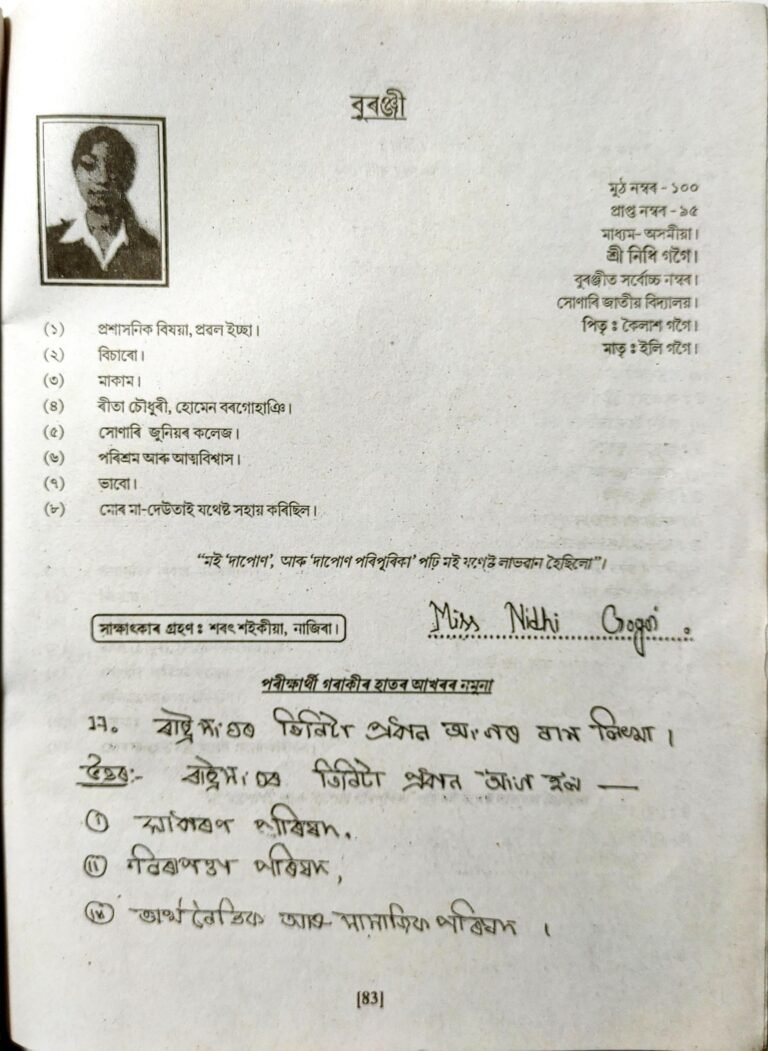 বুৰঞ্জী
মুঠ নম্বৰ - ১০০
প্ৰাপ্ত নম্বৰ - ৯৫
মাধ্যম- অসমীয়া।
শ্ৰী নিধি গগৈ।
বুৰঞ্জীত সৰ্বোচ্চ নম্বৰ।
সোণাৰি জাতীয় বিদ্যালয়।
পিতৃ ঃ কৈলাশ গগৈ।
মাতৃ ঃ ইলি গগৈ।
(১) প্ৰশাসনিক বিষয়া, প্ৰবল ইচ্ছা।
(২) বিচাৰো।
(৩) মাকাম।
(৪) ৰীতা চৌধুৰী, হোমেন বৰগোহাঞি।
(৫) সোণাৰি জুনিয়ৰ কলেজ।
(৬) পৰিশ্ৰম আৰু আত্মবিশ্বাস।
(৭) ভাবো।
(৮) মোৰ মা-দেউতাই যথেষ্ট সহায় কৰিছিল।
“মই ‘দাপোণ’, আৰু ‘দাপোণ পৰিপূৰিকা’ পঢ়ি মই যথেষ্ট লাভবান হৈছিলো”।
সাক্ষাৎকাৰ গ্ৰহণ ঃ শৰৎ শইকীয়া, নাজিৰা।
Miss Nidhi Gogoi.
পৰীক্ষাৰ্থী গৰাকীৰ হাতৰ আখৰৰ নমুনা
17. ৰাষ্ট্ৰসংঘৰ তিনিটা প্ৰধান অংগৰ নাম লিখা।
উত্তৰ:- ৰাষ্ট্ৰসংঘৰ তিনিটা প্ৰধান অংগ হ'ল —
(i) সাধাৰণ পৰিষদ,
(ii) নিৰাপত্তা পৰিষদ,
(iii) অৰ্থনৈতিক আৰু সামাজিক পৰিষদ।
[83]